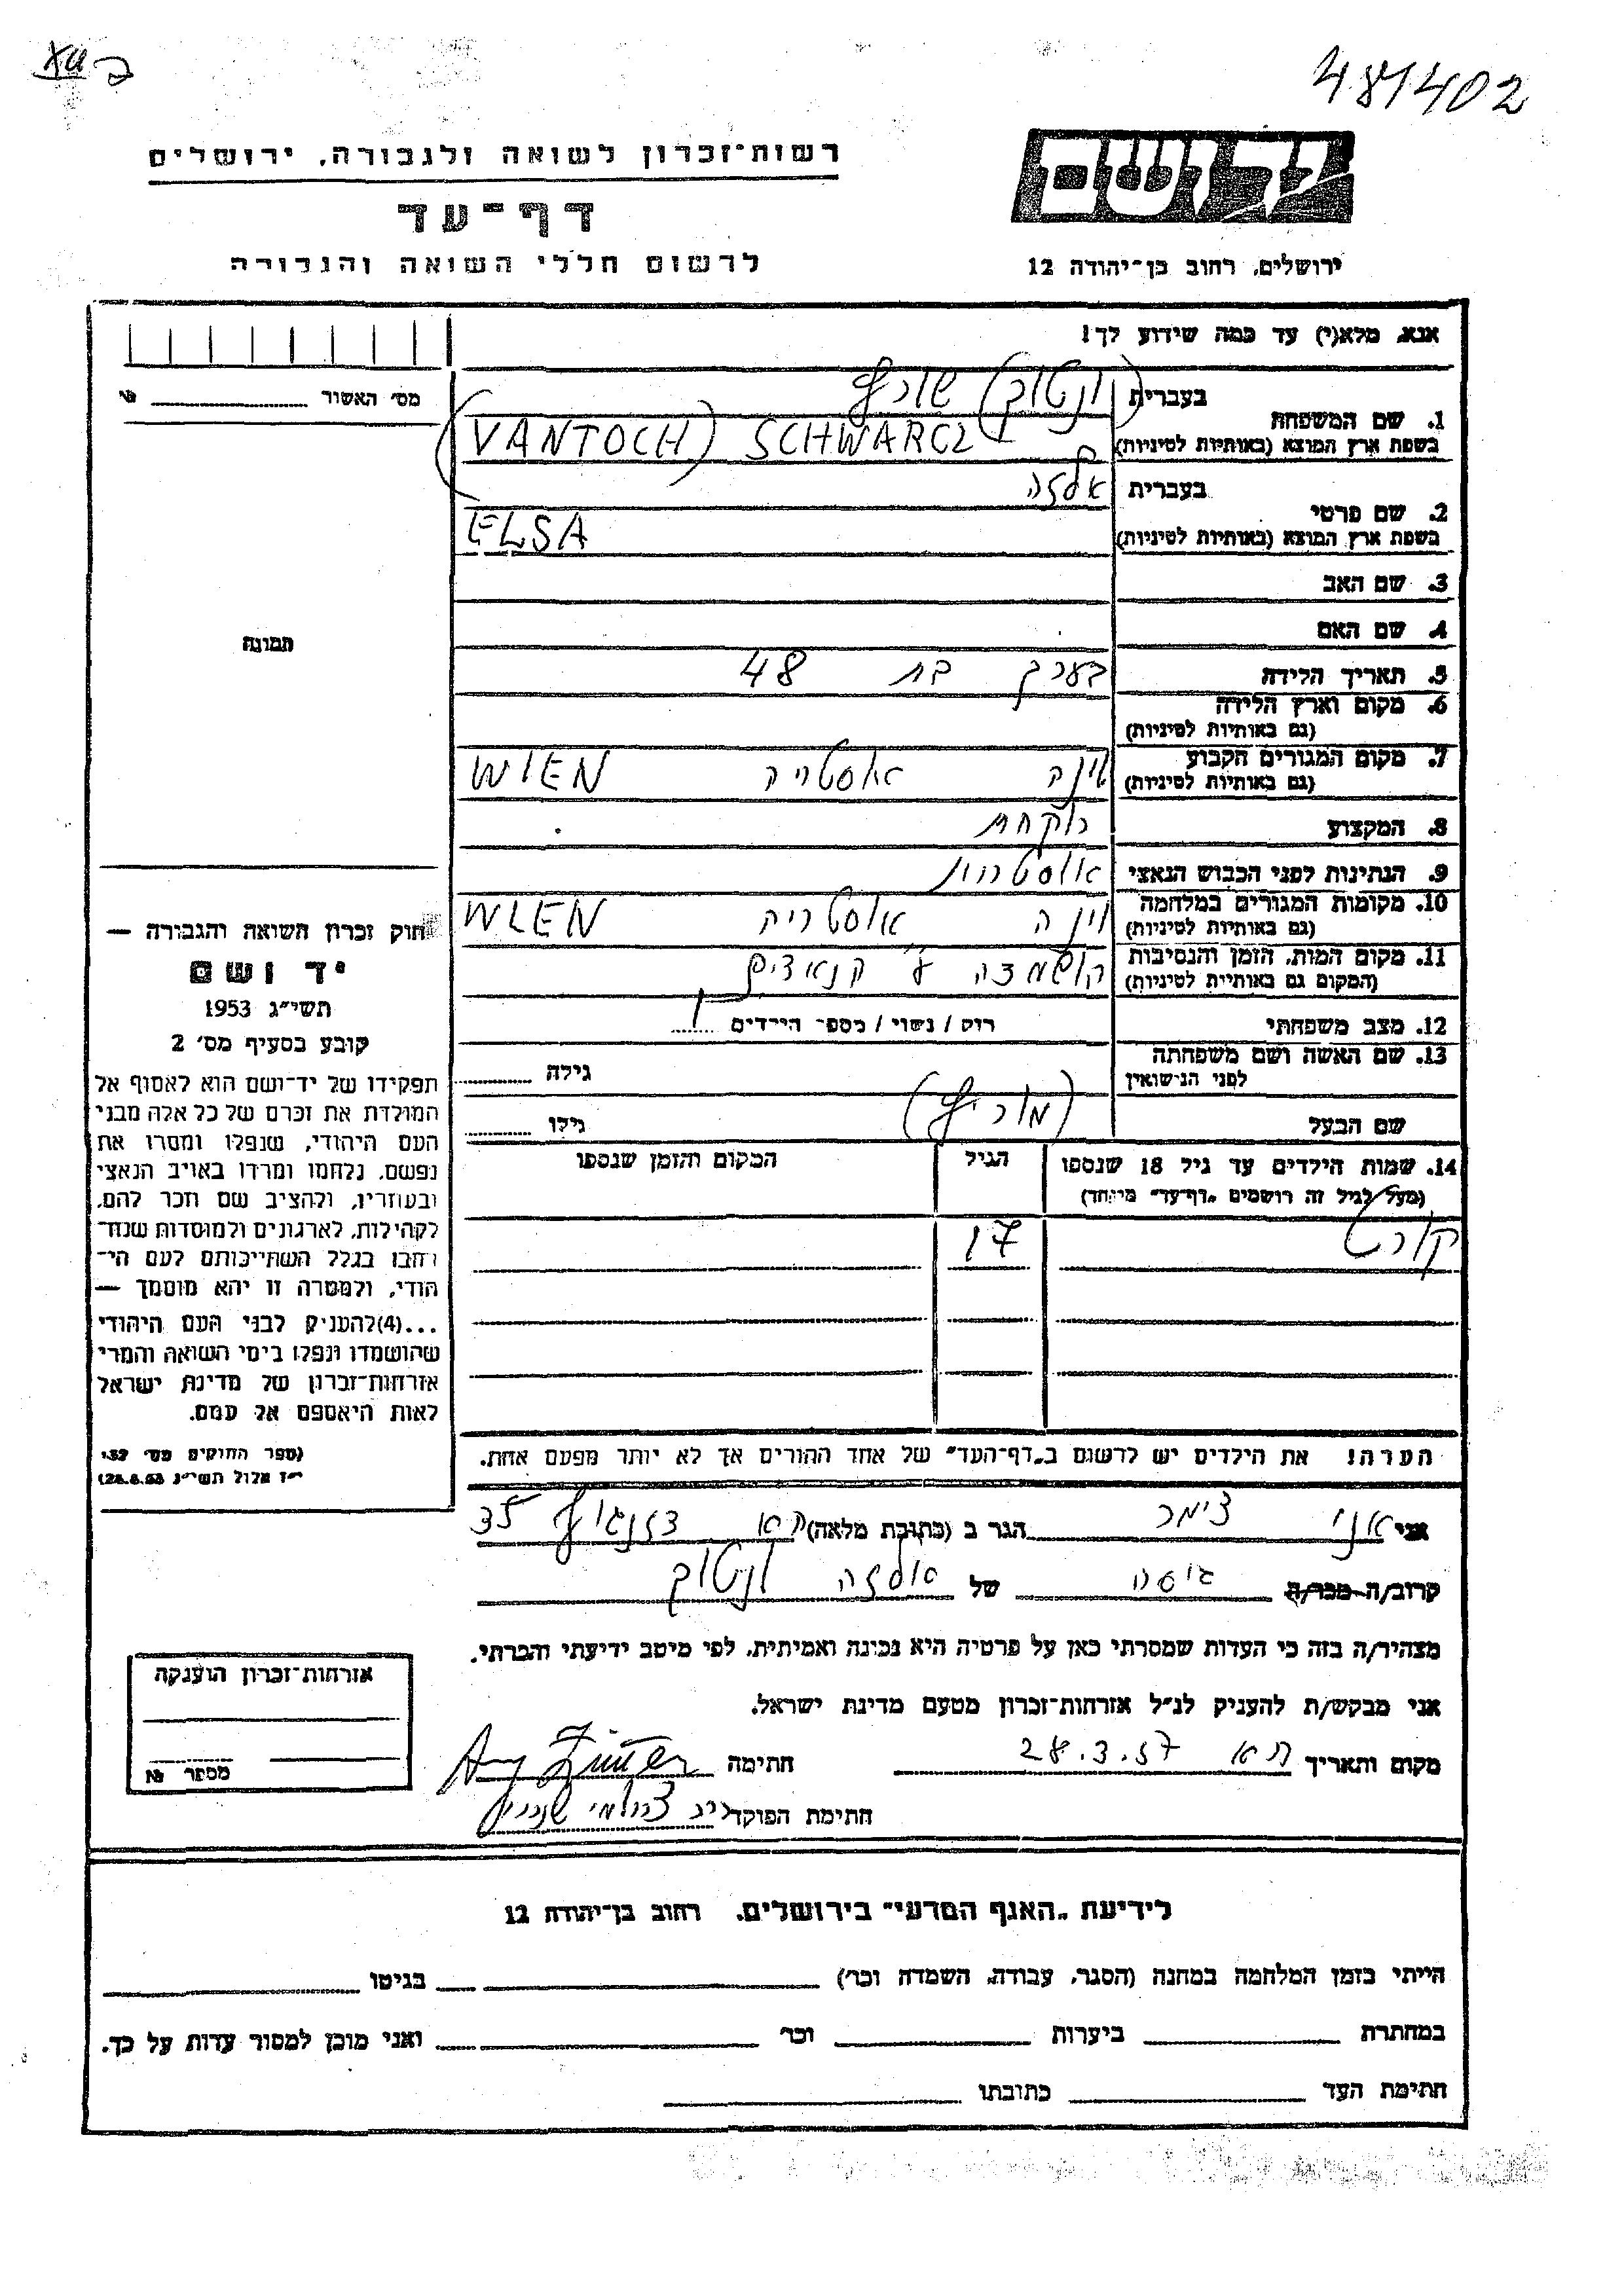 481402
רשות־זכרון לשואה ולגבורה, ירושלים
דף־עד
לרשום חללי השואה והגבורה
ירושלים, רחוב בן־יהודה 12
אנא, מלא(י) עד כמה שידוע לך!
מס׳ האשור №
1. שם המשפחה
בעברית (ונטוך) שורץ
בשפת ארץ המוצא (באותיות לטיניות) (VANTOCH) SCHWARCZ
2. שם פרטי
בעברית אלזה
בשפת ארץ המוצא (באותיות לטיניות) ELSA
3. שם האב
4. שם האם
5. תאריך הלידה בערך בת 48
6. מקום וארץ הלידה
(גם באותיות לטיניות)
7. מקום המגורים הקבוע וינה אוסטריה WIEN
(גם באותיות לטיניות)
8. המקצוע רוקחת
9. הנתינות לפני הכבוש הנאצי אוסטרית
10. מקומות המגורים במלחמה וינה אוסטריה WIEN
(גם באותיות לטיניות)
11. מקום המות, הזמן והנסיבות הושמדה ע״י הנאצים
(המקום גם באותיות לטיניות)
12. מצב משפחתי רוק / נשוי / מספר הילדים 1
13. שם האשה ושם משפחתה
לפני הנישואין גילה
שם הבעל (מוריץ) גילו
14. שמות הילדים עד גיל 18 שנספו הגיל המקום והזמן שנספו
(מעל לגיל זה רושמים „דף־עד״ מיוחד)
קורט 17
הערה! את הילדים יש לרשום ב„דף־העד״ של אחד ההורים אך לא יותר מפעם אחת.
תמונה
חוק זכרון השואה והגבורה —
יד ושם
תשי״ג 1953
קובע בסעיף מס׳ 2
תפקידו של יד־ושם הוא לאסוף אל
המולדת את זכרם של כל אלה מבני
העם היהודי, שנפלו ומסרו את
נפשם, נלחמו ומרדו באויב הנאצי
ובעוזריו, ולהציב שם וזכר להם,
לקהילות, לארגונים ולמוסדות שנח־
רבו בגלל השתייכותם לעם הי־
הודי, ולמטרה זו יהא מוסמך —
...(4)להעניק לבני העם היהודי
שהושמדו ונפלו בימי השואה והמרי
אזרחות־זכרון של מדינת ישראל
לאות היאספם אל עמם.
(ספר החוקים מס׳ 132,
י״ז אלול תשי״ג 28.8.53)
אני אני צימר הגר ב (כתובת מלאה) תא דזנגוף 35
קרוב/ה מכר/ה גיסה של אלזה ונטוך
מצהיר/ה בזה כי העדות שמסרתי כאן על פרטיה היא נכונה ואמיתית, לפי מיטב ידיעתי והכרתי.
אני מבקש/ת להעניק לנ״ל אזרחות־זכרון מטעם מדינת ישראל.
מקום ותאריך תא 28.3.57 חתימה
חתימת הפוקד
אזרחות־זכרון הוענקה
מספר №
לידיעת „האגף המדעי״ בירושלים, רחוב בן־יהודה 12
הייתי בזמן המלחמה במחנה (הסגר, עבודה, השמדה וכר׳) בגיטו
במחתרת ביערות וכר׳ ואני מוכן למסור עדות על כך.
חתימת העד כתובתו